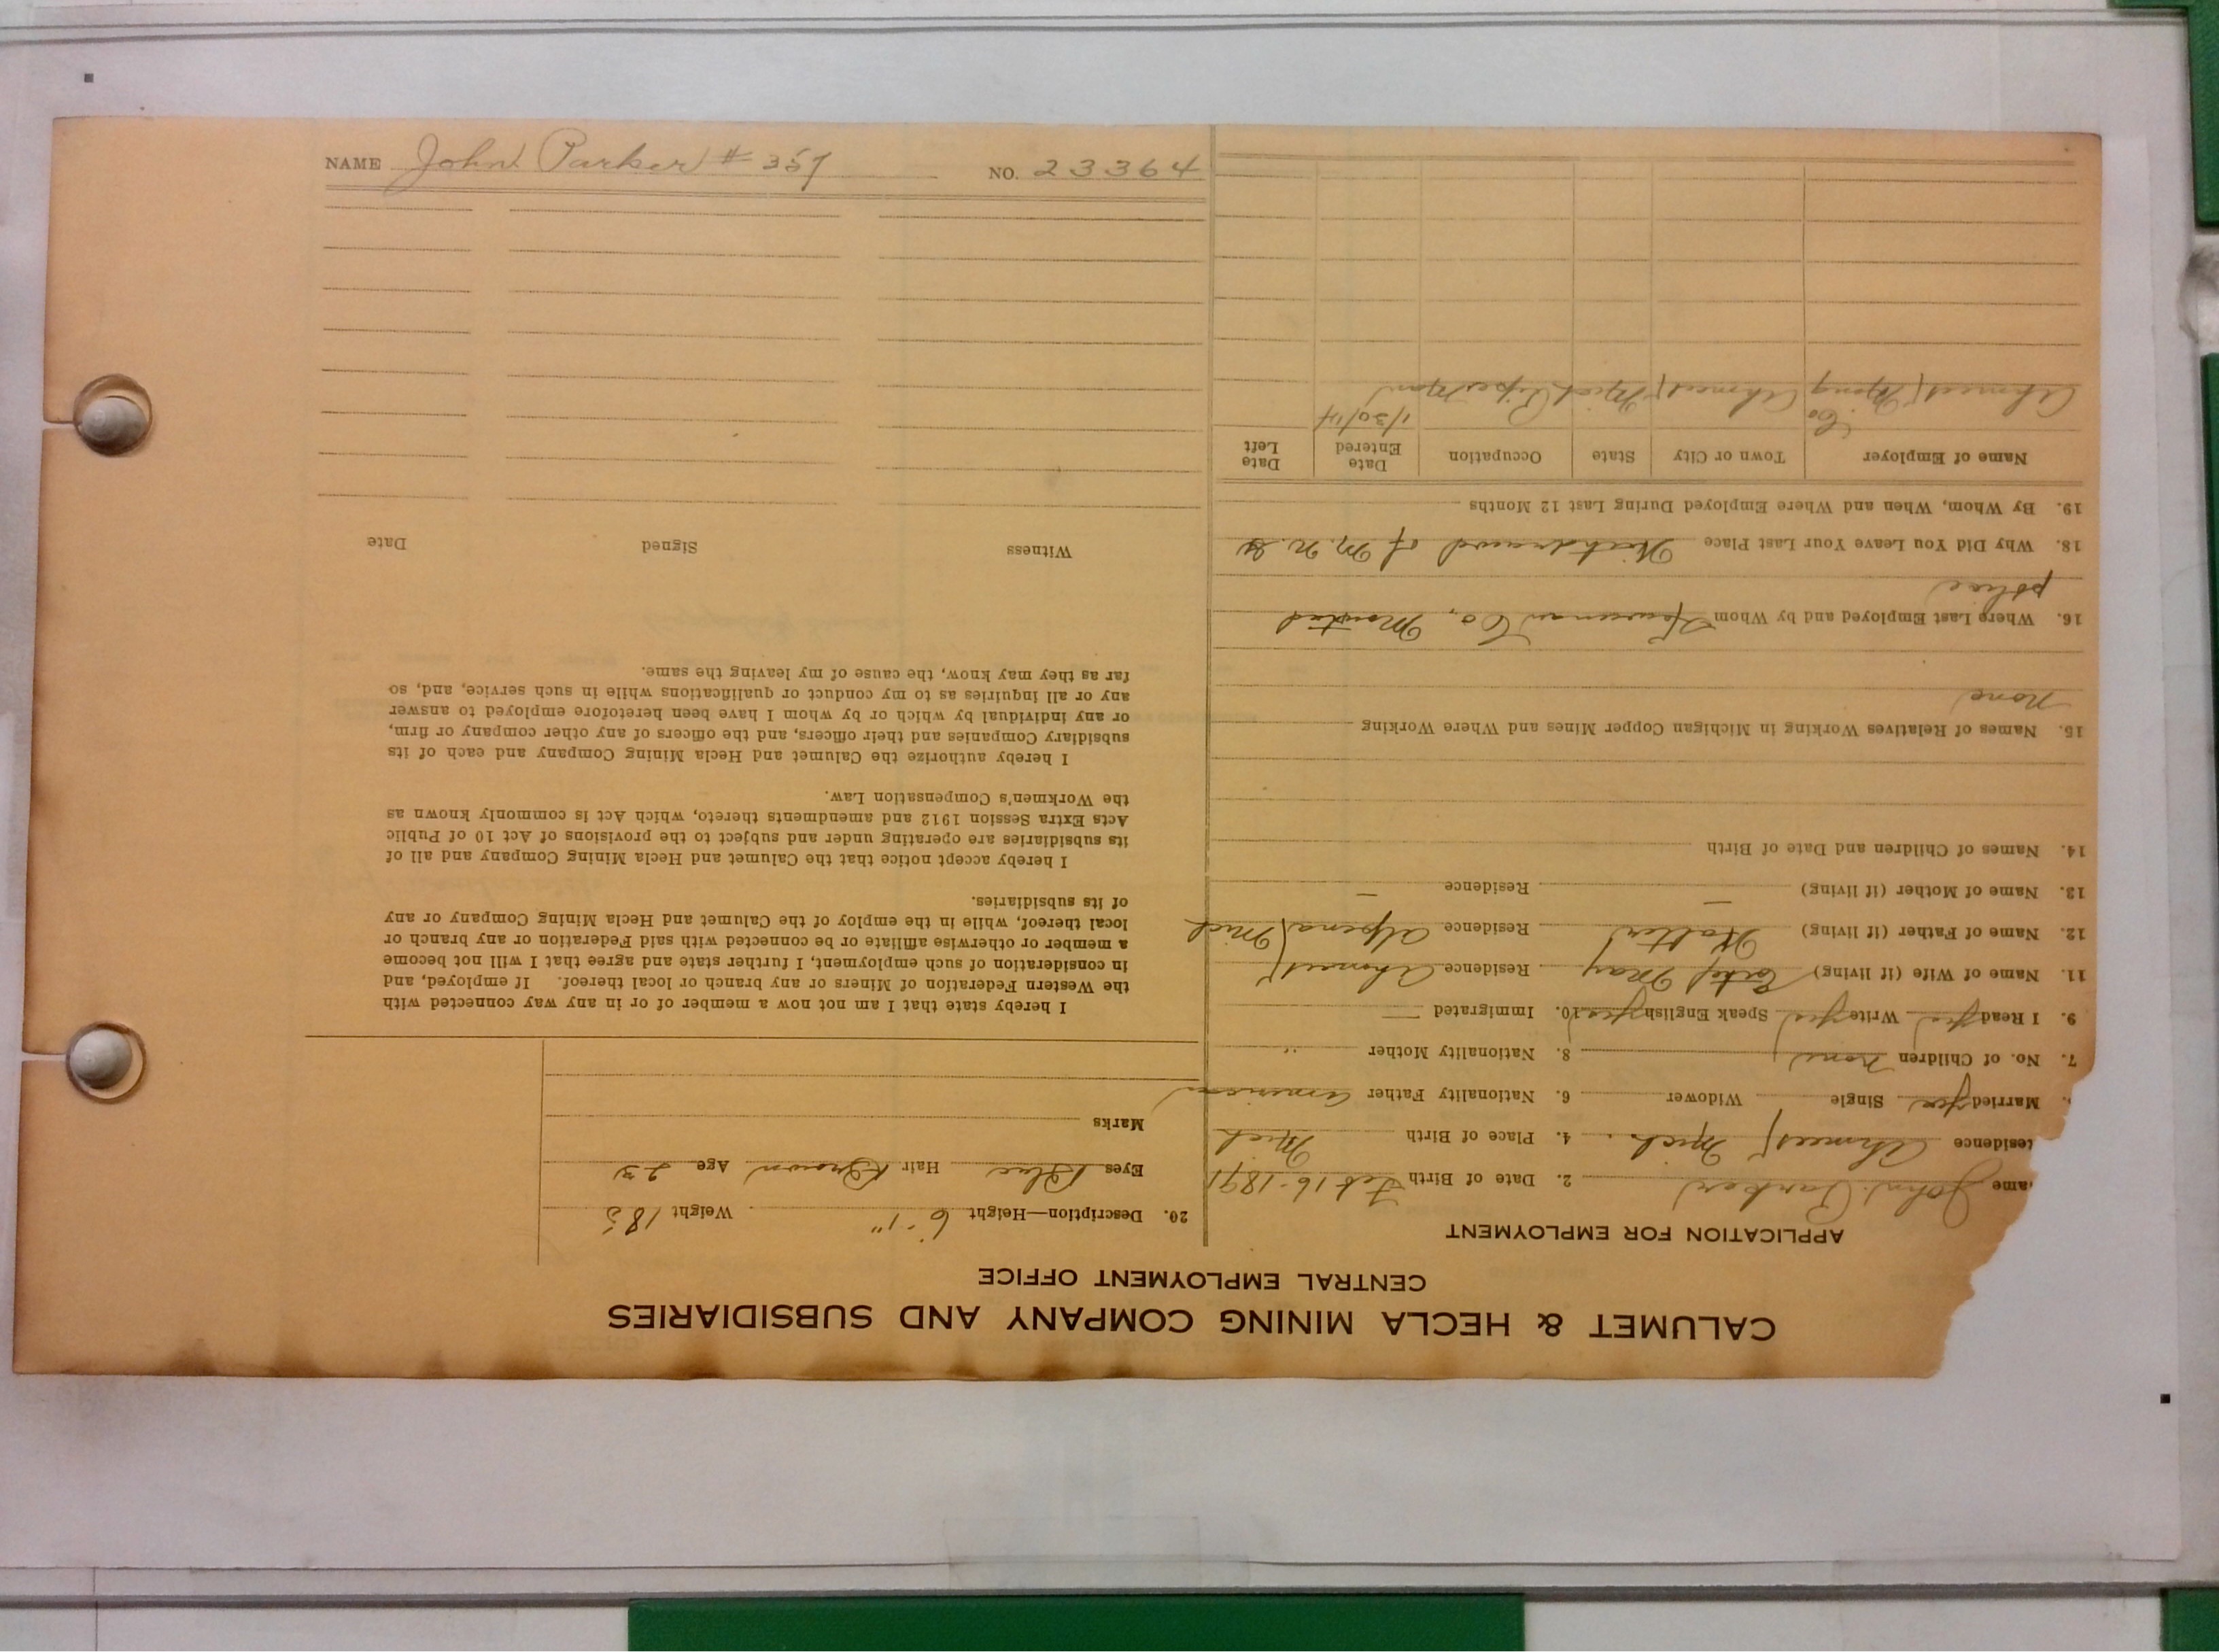 CALUMET & HECLA MINING COMPANY AND SUBSIDIARIES
CENTRAL EMPLOYMENT OFFICE
APPLICATION FOR EMPLOYMENT
ame John Parker 2. Date of Birth Feb 16-1891
esidence Ahmeek Mich. 4. Place of Birth Mich
Married yes Single Widower 6. Nationality Father American
7. No. of Children none 8. Nationality Mother "
9. I Read yes Write yes Speak English yes 10. Immigrated —
11. Name of Wife (if living) May Residence Ahmeek
12. Name of Father (if living) Walter Residence Alpena Mich
13. Name of Mother (if living) — Residence —
14. Names of Children and Date of Birth
15. Names of Relatives Working in Michigan Copper Mines and Where Working
none
16. Where Last Employed and by Whom Keweenaw Co, Mounted
police
18. Why Did You Leave Your Last Place Withdrawal of M. N. G
19. By Whom, When and Where Employed During Last 12 Months
Name of Employer Town or City State Occupation Date Entered Date Left
Ahmeek Mining Co Ahmeek Mich Pipeman 1/30/14
20. Description—Height 6'-1" Weight 185
Eyes Blue Hair Brown Age 23
Marks
I hereby state that I am not now a member of or in any way connected with
the Western Federation of Miners or any branch or local thereof. If employed, and
in consideration of such employment, I further state and agree that I will not become
a member or otherwise affiliate or be connected with said Federation or any branch or
local thereof, while in the employ of the Calumet and Hecla Mining Company or any
of its subsidiaries.
I hereby accept notice that the Calumet and Hecla Mining Company and all of
its subsidiaries are operating under and subject to the provisions of Act 10 of Public
Acts Extra Session 1912 and amendments thereto, which Act is commonly known as
the Workmen's Compensation Law.
I hereby authorize the Calumet and Hecla Mining Company and each of its
subsidiary Companies and their officers, and the officers of any other company or firm,
or any individual by which or by whom I have been heretofore employed to answer
any or all inquiries as to my conduct or qualifications while in such service, and, so
far as they may know, the cause of my leaving the same.
Witness Signed Date
NAME John Parker # 357 NO. 23364